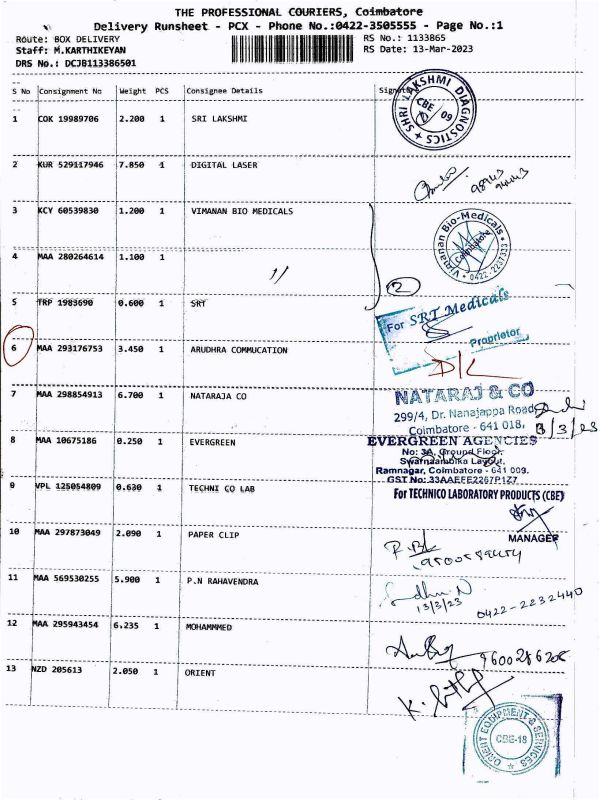 THE PROFESSIONAL COURIERS, Coimbatore
Delivery Runsheet - PCX - Phone No.:0422-3505555 - Page No.:1
Route: BOX DELIVERY
RS No.: 1133865
Staff: M.KARTHIKEYAN
RS Date: 13-Mar-2023
DRS No.: DCJB113386501
S No Consignment No Weight PCS Consignee Details
1 COK 19989706 2.200 1 SRI LAKSHMI
SHRI LAKSHMI DIAGNOSTICS
CBE
09
2 KUR 529117946 7.850 1 DIGITAL LASER
3 KCY 60539830 1.200 1 VIMANAN BIO MEDICALS
Vimanan Bio-Medicals
Coimbatore
0422-2237333
4 MAA 280264614 1.100 1
11
2
5 TRP 1983690 0.600 1 SRT
For SRT Medicals
Proprietor
6 MAA 293176753 3.450 1 ARUDHRA COMMUCATION
D/L
7 MAA 298854913 6.700 1 NATARAJA CO
NATARAJ & CO
299/4, Dr. Nanajappa Road
Coimbatore - 641 018,
13/3/23
8 MAA 10675186 0.250 1 EVERGREEN
EVERGREEN AGENCIES
No: 3A, Ground Floor,
Swarnaambika Layout,
Ramnagar, Coimbatore - 641 009.
GST No:33AAEFE2267P1Z7
9 VPL 125054809 0.630 1 TECHNI CO LAB
For TECHNICO LABORATORY PRODUCTS (CBE)
MANAGER
10 MAA 297873049 2.090 1 PAPER CLIP
11 MAA 569530255 5.900 1 P.N RAHAVENDRA
13/3/23
0422-2232440
12 MAA 295943454 6.235 1 MOHAMMMED
13 NZD 205613 2.050 1 ORIENT
ORIENT EQUIPMENT & SERVICES
CBE-18